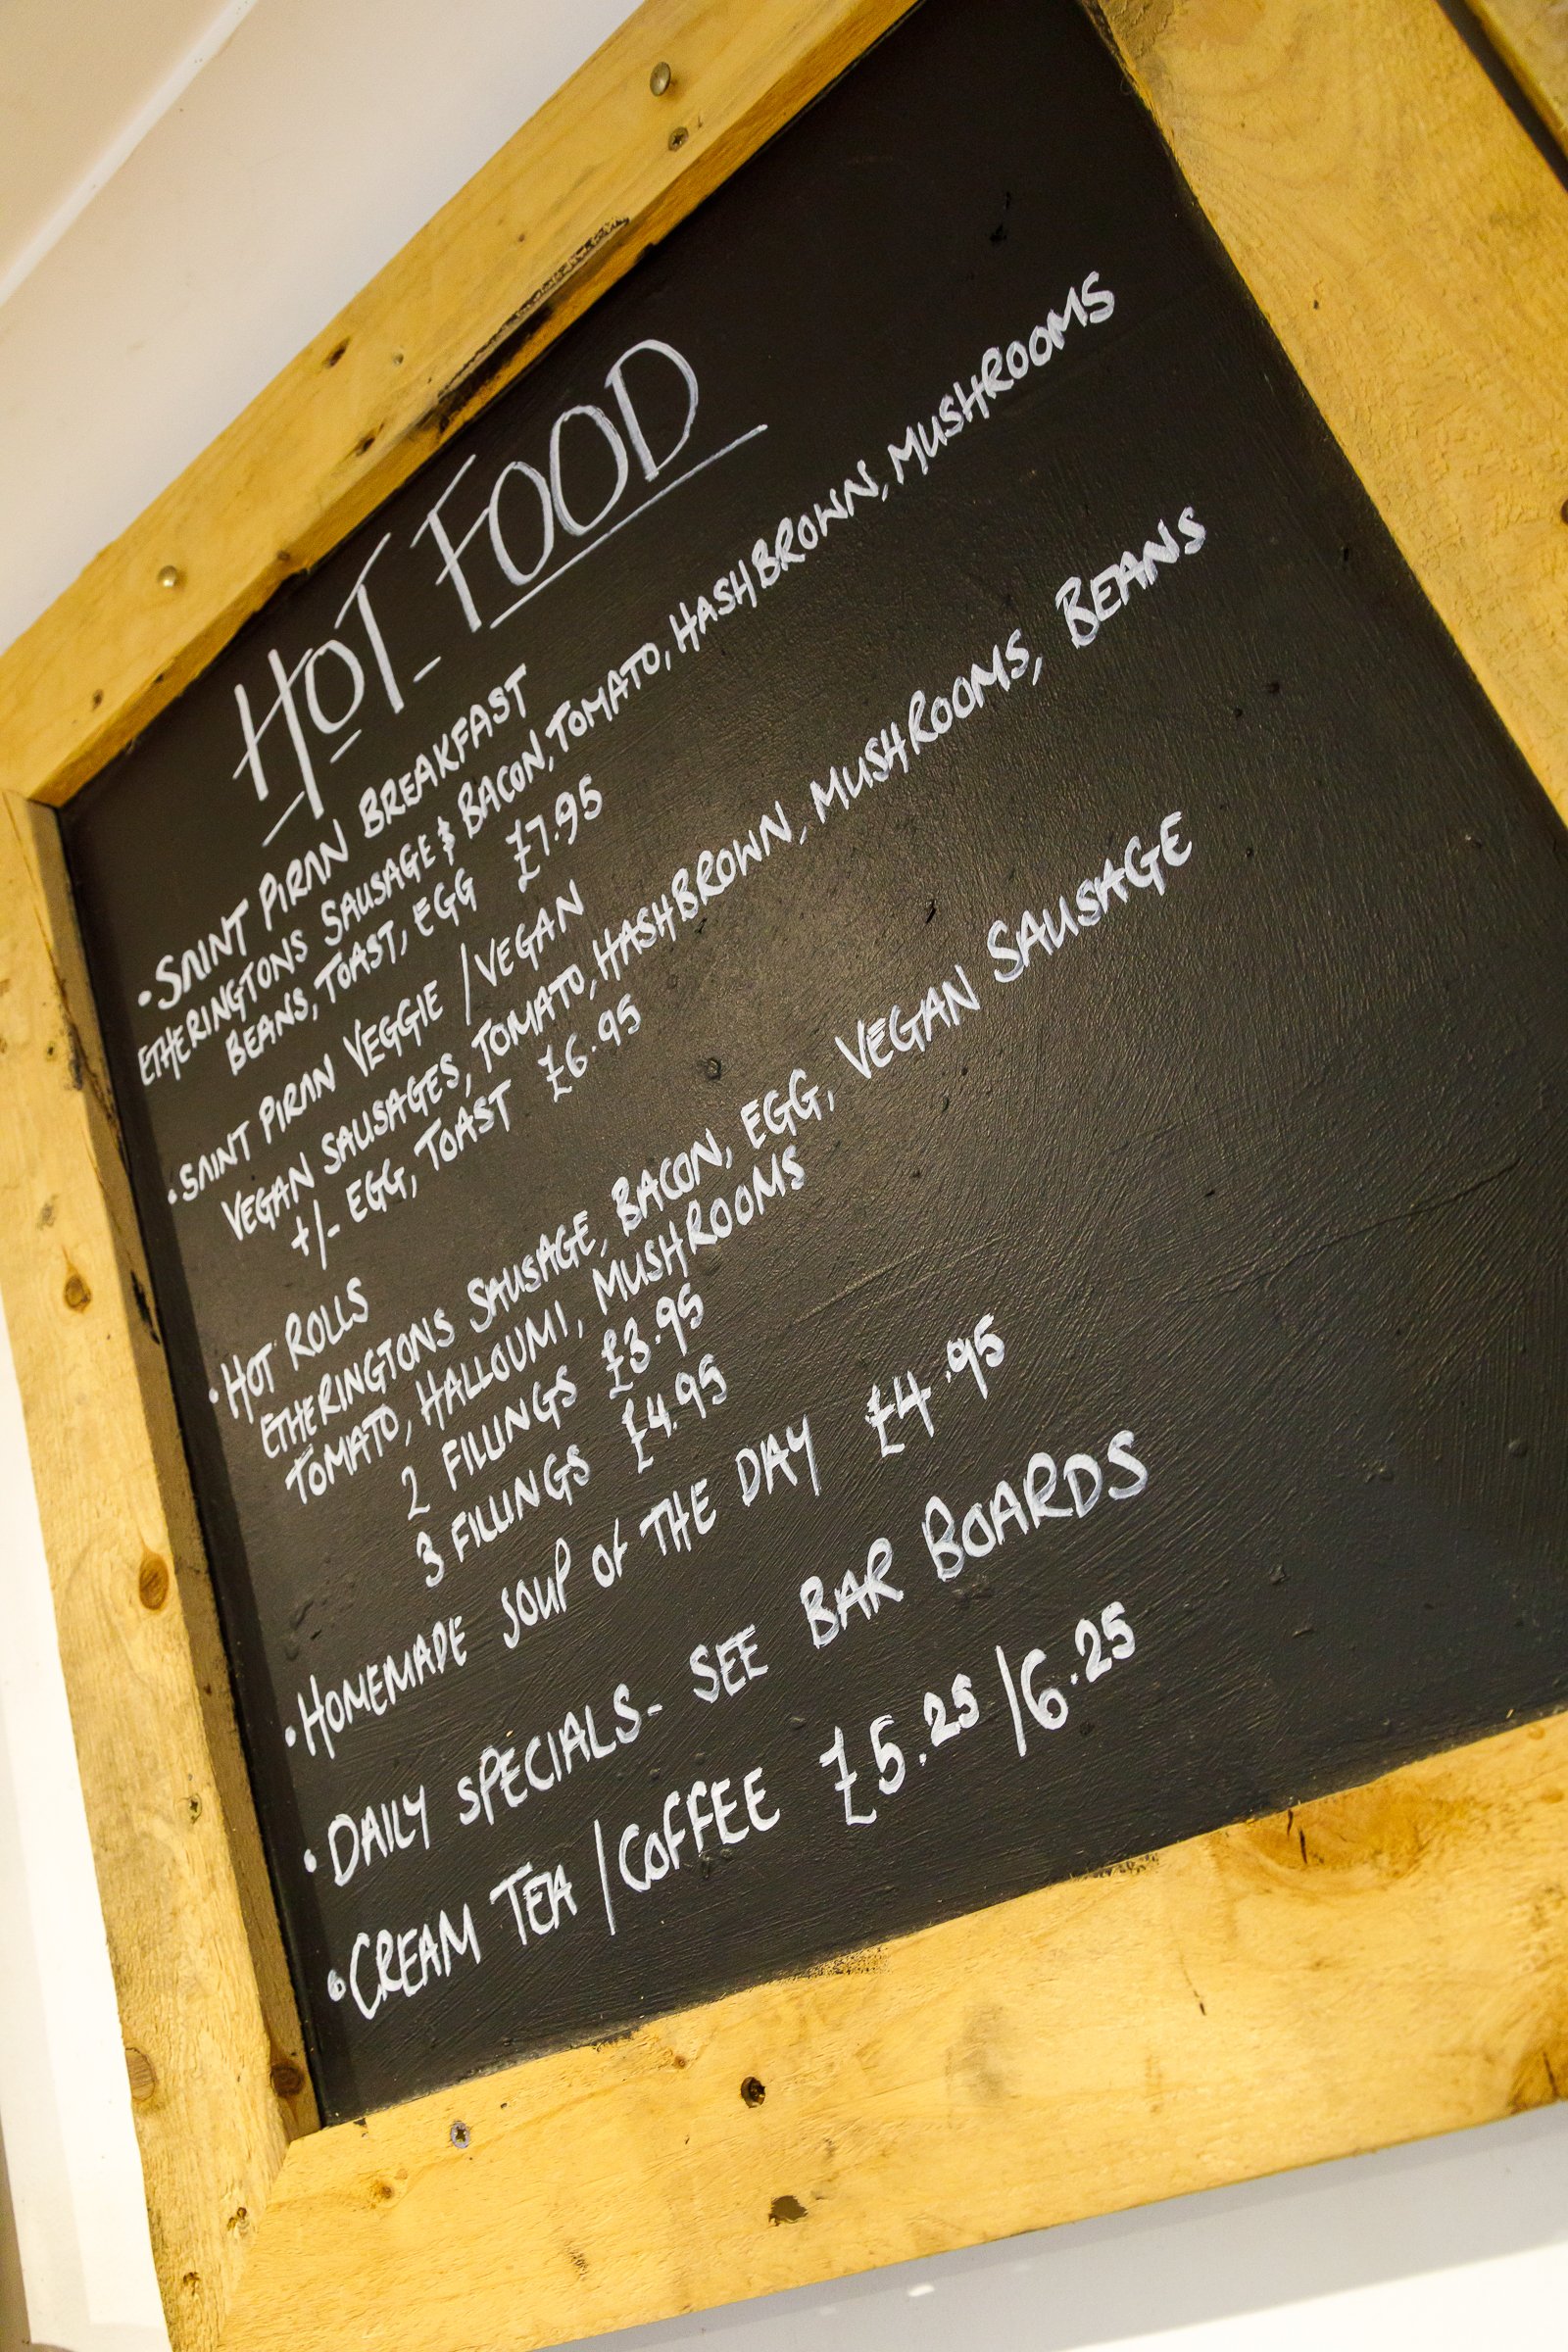 HOT FOOD
• SAINT PIRAN BREAKFAST
ETHERINGTONS SAUSAGE & BACON, TOMATO, HASHBROWN, MUSHROOMS
BEANS, TOAST, EGG £7.95
• SAINT PIRAN VEGGIE / VEGAN
VEGAN SAUSAGES, TOMATO, HASHBROWN, MUSHROOMS, BEANS
+/- EGG, TOAST £6.95
• HOT ROLLS
ETHERINGTONS SAUSAGE, BACON, EGG, VEGAN SAUSAGE
TOMATO, HALLOUMI, MUSHROOMS
2 FILLINGS £3.95
3 FILLINGS £4.95
• HOMEMADE SOUP OF THE DAY £4.95
• DAILY SPECIALS - SEE BAR BOARDS
• CREAM TEA / COFFEE £5.25 / 6.25